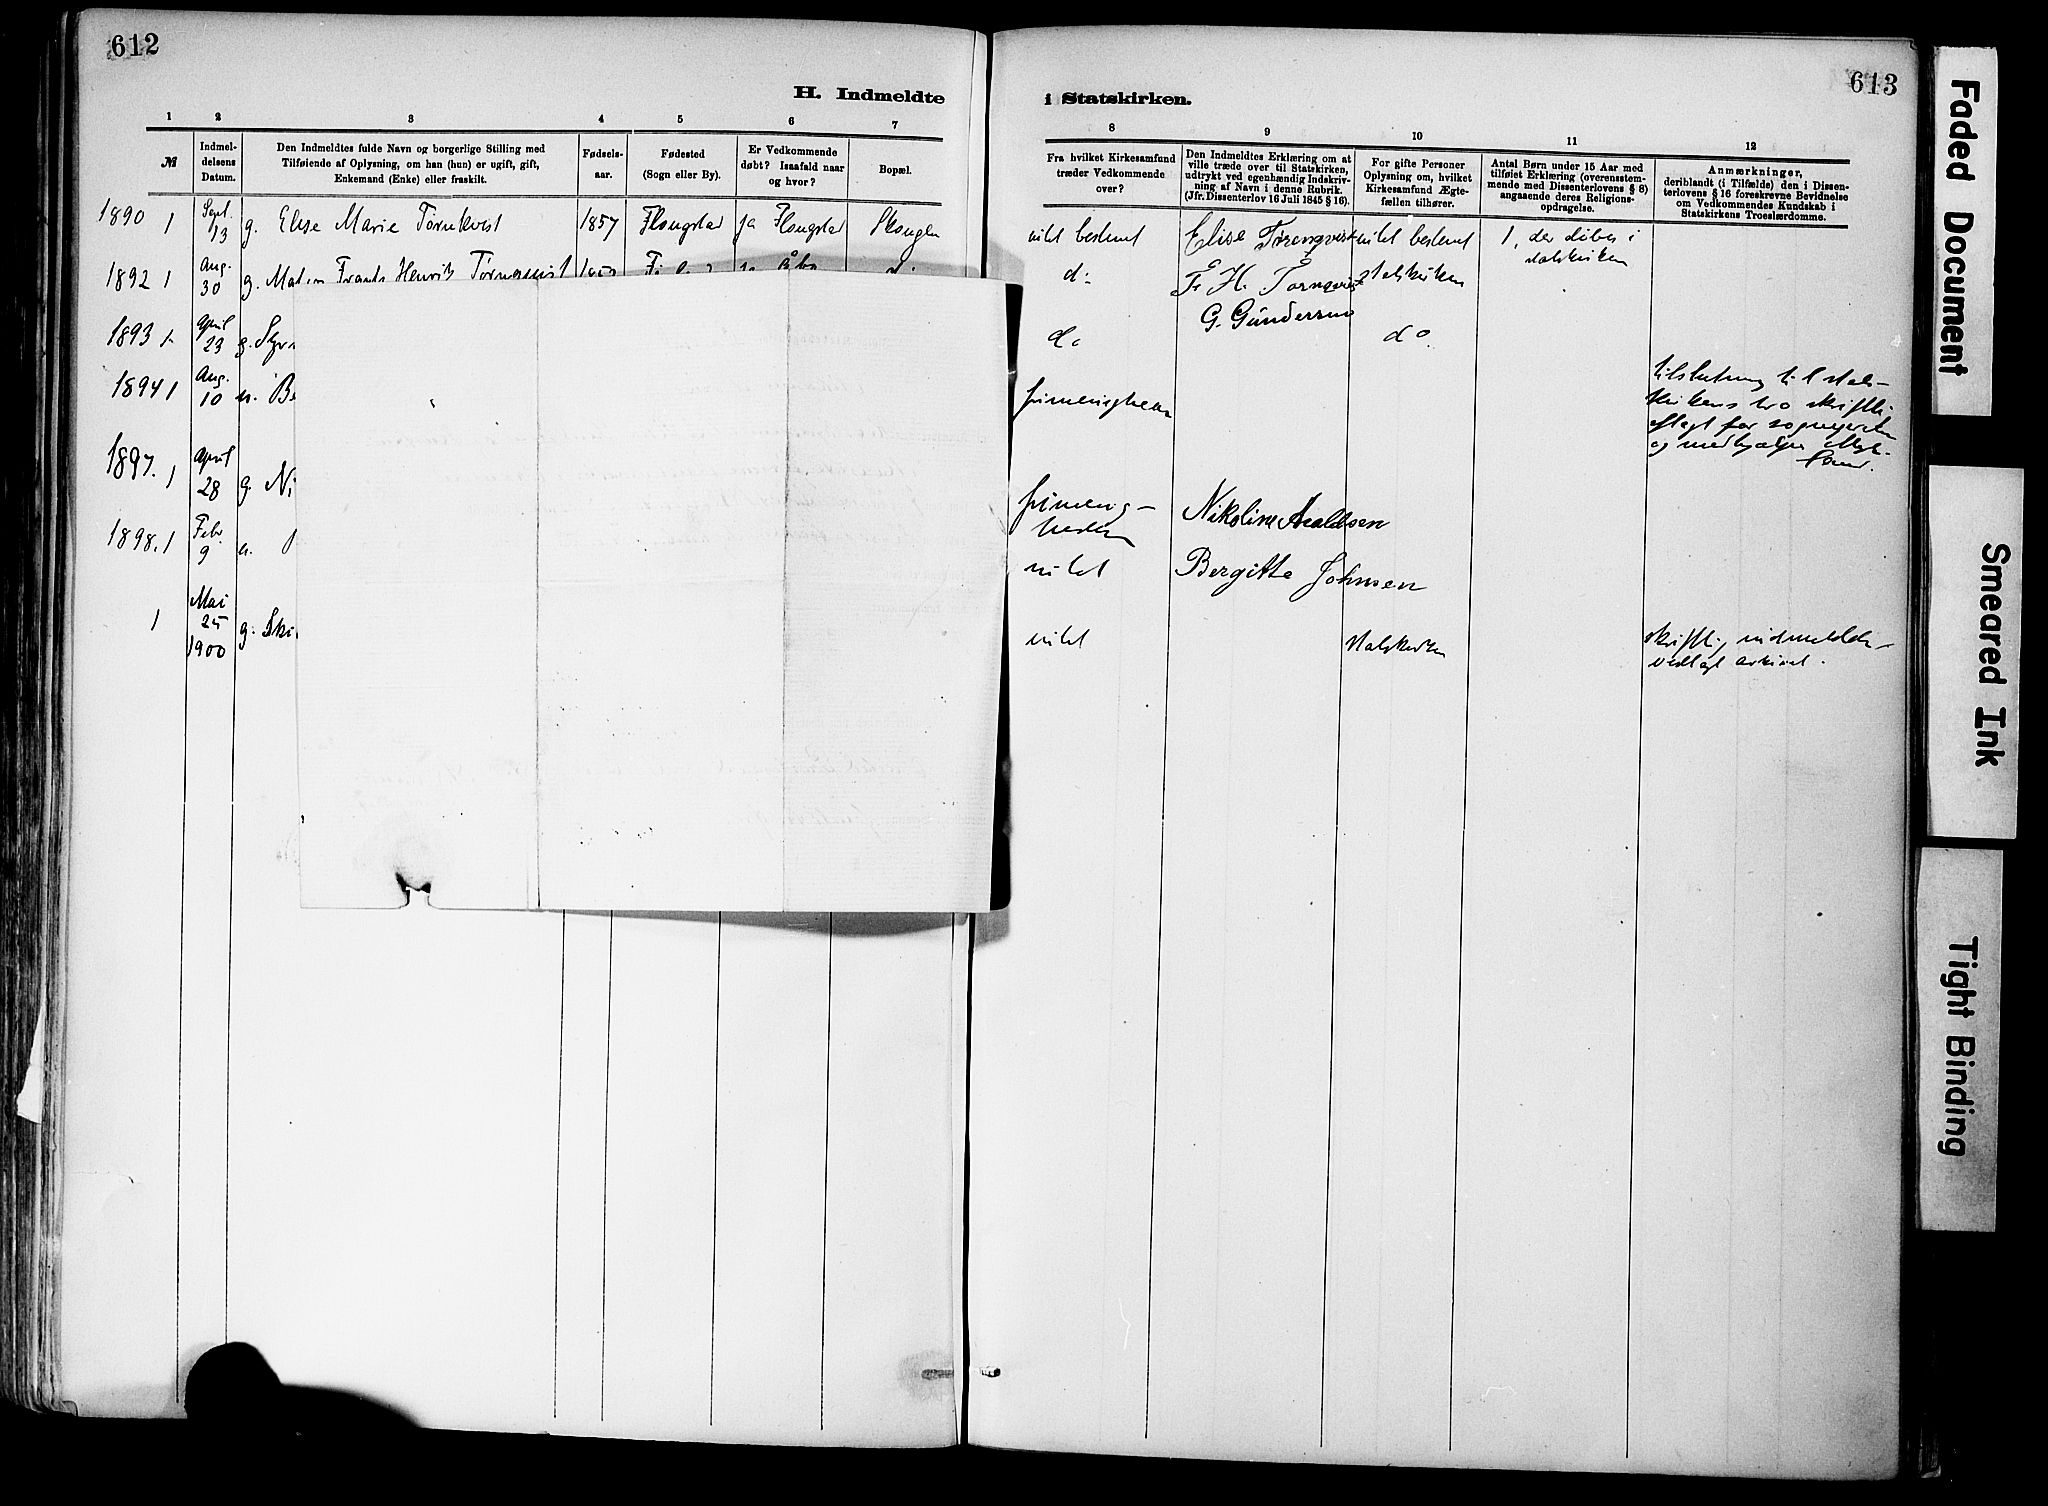 612
H. Indmeldte
1 2 3 4 5 6 7
№
Indmel-
delsens
Datum.
Den Indmeldtes fulde Navn og borgerlige Stilling med
Tilføiende af Oplysning, om han (hun) er ugift, gift,
Enkemand (Enke) eller fraskilt.
Fødsels-
aar.
Fødested
(Sogn eller By).
Er Vedkommende
døbt? Isaafald naar
og hvor?
Bopæl.
1890 1 Sept. 13 g. Elise Marie Tørnkvist 1857 ja
1892 1 Aug. 30 g. Frants Henrik Tørnqvist
1893 1 April 23 g.
1894 1 Aug. 10 u. Be
1897. 1 April 28 g. Ni
1898. 1 Febr. 9 u.
1 Mai 25 1900 g. Ski
613
i Statskirken.
8 9 10 11 12
Fra hvilket Kirkesamfund
træder Vedkommende
over?
Den Indmeldtes Erklæring om at
ville træde over til Statskirken,
udtrykt ved egenhændig Indskriv-
ning af Navn i denne Rubrik.
(Jfr. Dissenterlov 16 Juli 1845 § 16).
For gifte Personer
Oplysning om, hvilket
Kirkesamfund Ægte-
fællen tilhører.
Antal Børn under 15 Aar med
tilføiet Erklæring (overensstem-
mende med Dissenterlovens § 8)
angaaende deres Religions-
opdragelse.
Anmærkninger,
deriblandt (i Tilfælde) den i Dissen-
terlovens § 16 foreskrevne Bevidnelse
om Vedkommendes Kundskab i
Statskirkens Troeslærdomme.
intet bestemt Elise Tørenqvist intet bestemt 1, der døbes i
statskirken
do F. H. Tornqvist statskirken
G. Gundersen
do do
tilslutning til stats-
kirkens tro skriftli
aflagt for
og medhjælper
frimenigheden
frimenig-
heden Nikoline Araldsen
intet Bergitte Johnsen
intet statskirken skriftlig indmeldelse
vedlagt arkivet.
Faded Document
Smeared Ink
Tight Binding